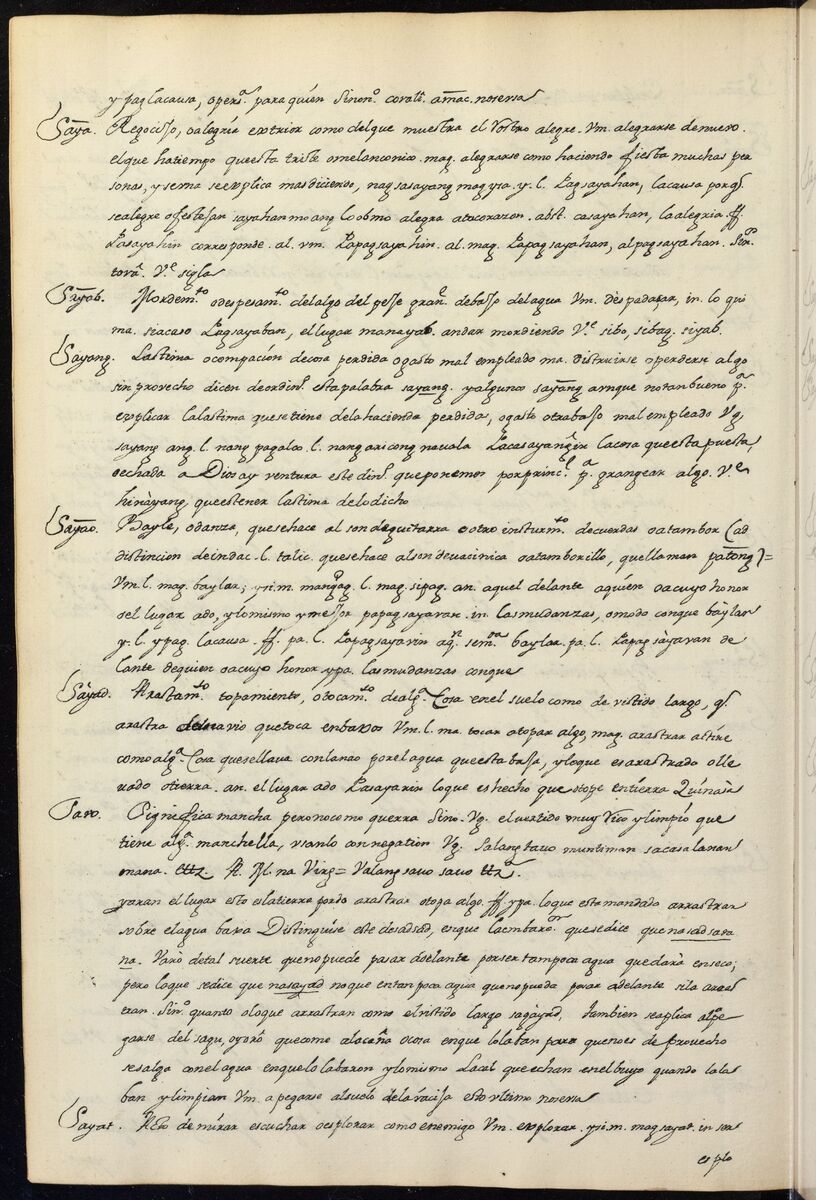 y pag lacausa, opers.ª para quien Sinon.º covali. amac. noserva
Saya. Regocijo, oalegria extrior como delque muestra el Rostro alegre. Vm. alegrarse denuevo.
elque hatiempo queesta triste omelanconico. mag. alegrarse como haciendo fiesta muchas per
sonas, ysema seexplica mas diciendo, nag sasayang magyra. y. l. Pagsayahan, lacausa porq̃.
sealegre ofestejan sayahan moang loobmo alegra atucorazon. abst. casayahan, la alegria. ff.
Pasayahin corresponde. al. vm. Papagsayahin. al. mag. Papagsayahan, alpagsayahan. Sin.º
V.e sigla
Sayab. odespesam.to delalgo del debajo delagua Vm. despadasar, in. lo que
ma. siacaso Pagsayaban, ellugar manayab. andar mordiendo V.e sibo, sibag. siyab.
Sayang. Lastima ocompacion decosa perdida ogasto mal empleado ma. distruirse operderse algo
sin provecho dicen deordin.º estapalabra sayang. yalgunos sayang aunque notanbueno p.ª
explicar lalastima quesetiene delahacienda perdida, ogasto otrabajo mal empleado Vg.
sayang ang. l. nang pagalco. l. nang aricong navala Pacasayangin lacosa queesta puesta,
oechada a Dios y ventura este din.º queponemos porprinc.l p.ª grangear algo. V.e
hinayang, queestener lastima delodicho
Sayao. Bayle, odanza, quesehace al son deguitarra ootro insturm.to decuerdas oatambor (ad
distincion deindac. l. talic. quesehace alson devacinica oatamborillo, quellaman patong)=
Vm. l. mag. baylar; ysi.m. mangag. l. mag. sipag. an. aquel delante aquien oacuyo honor
oel lugar ado, ylomismo ymejor papagsayavan. in. lasmudanzas, omodo conque baylan
y. l. ypag. lacausa. ff. pa. l. Papagsayavin aq.n sem.da baylar. pa. l. Papagsayavan de
lante dequien oacuyo honor ypa. lasmudanzas conque
Sayad. Arastam.to topamiento, otocam.to dealg.ª Cosa enel suelo como de vistido largo, q̃.
arastra navio quetoca enbaxos Vm. l. ma. tocar atopar algo, mag. arastrar astire
comoalg.ª Cosa quesellava conlanao porelagua queestabaja, yloque esarastrado olle
vado otierra. an. el lugar ado Pasayarin loque eshecho que otope entierra
Savo. Significa mancha peronocomo quiera Sino. Vg. elvestido muy Rico ylimpio que
tiene alg.ª manchella, vsanlo connegation Vg. Salang tavo muntiman sacasalanan
manna. A. M. na Virg= Valang savo savo
yaran el lugar esto eslatierra pordo arastrar otopa algo. ff. ypa. loque estamandado arrastrar
sobre elagua baxa Distinguise este desadsad, enque laembaro.on quesedice que nasadsara
na. Varò detal suerte quenopuede pasar adelante porser tampoca agua quedarà enseco;
pero loque sedice que nasayad noque entanpoca agua quenopueda pasar adelante sila arras
tran. Sin.º quanto oloque arrastran como elvistido largo sagayad, tambien seaplica alpe
garse del sagu, oyoro quecome alacaña ocosa enque lolaban para quenoes de provecho
sesalga conel agua enquelo labaron ylomismo Lacal queechan enelbuyo quando lala
ban ylimpian Vm. apegarse alsuelo delavacija esto vltimo noserva
Sayat. Acto de mirar escuchar oesplorar como enemigo Vm. explorar. ysi.m. mag sayat. in. son
esplo